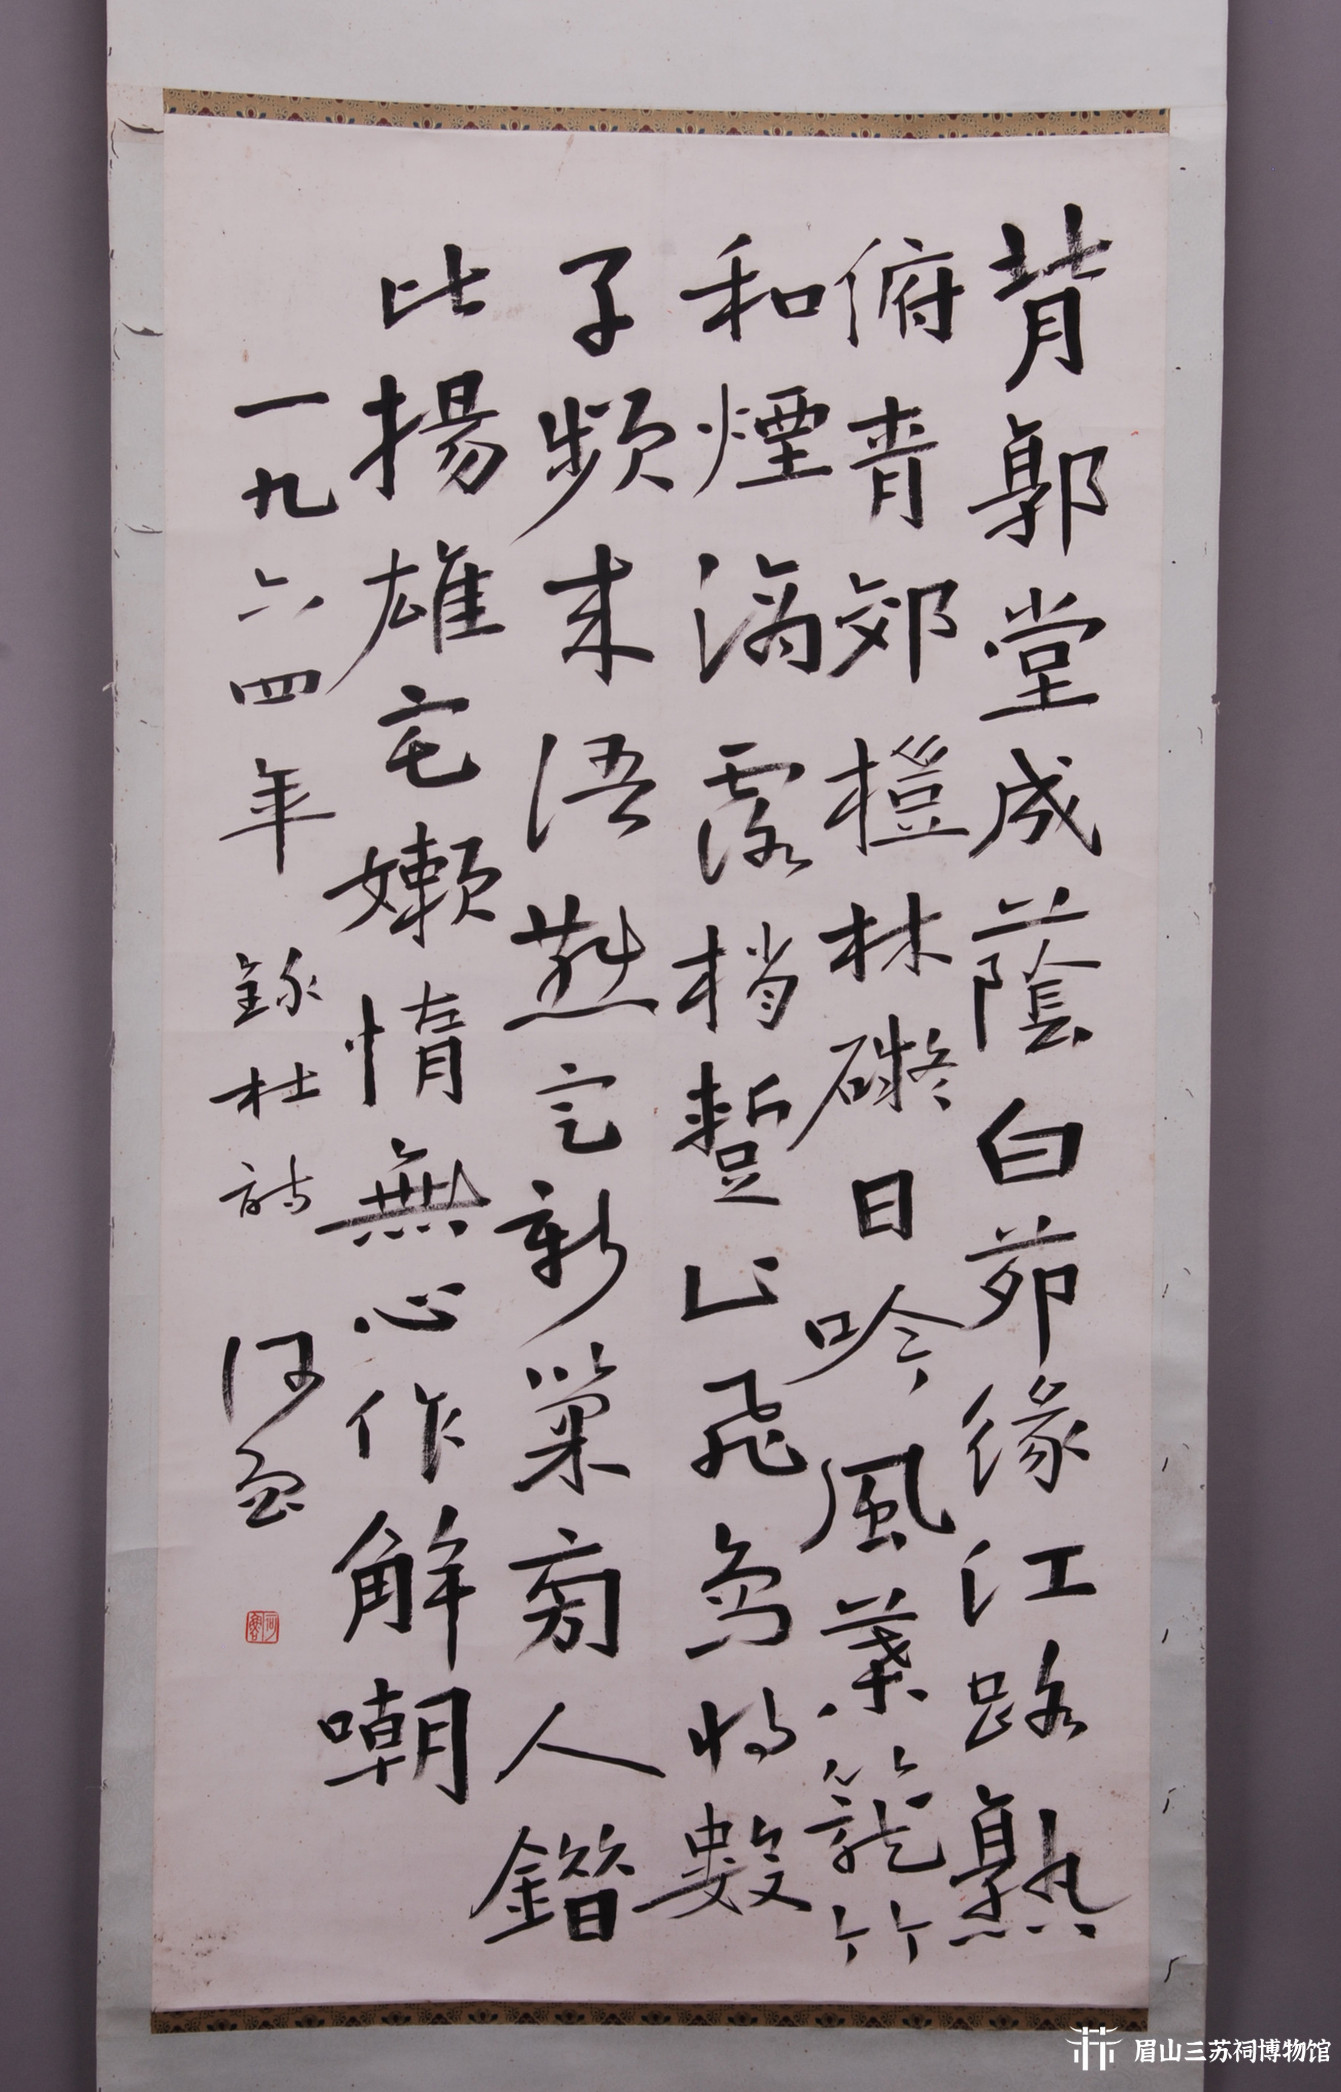 背郭堂成蔭白茆緣江路熟
俯青郊榿林礙日吟風葉籠竹
和煙滴露梢蹔止飛烏將數
子頻来語燕定新巢旁人錯
比揚雄宅嬾惰無心作解嘲
一九六四年 錄杜詩 何
眉山三苏祠博物馆